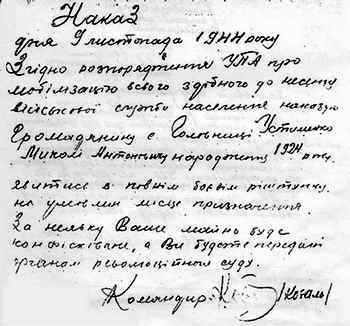 Наказ
дня 9 листопада 1944 року
Згідно розпорядження УПА про
мобілізацію всього здібного до несення
військової служби населення наказую
громадянину с. Головниці Устименко
Миколі Антоновичу народження 1924 року.
явитись в повнім боєвім ріштунку
на умовлен місце призначення.
За неявку Ваше майно буде
конфісковане, а Ви будете передані
органам революційного суду.
Командир /Коваль/